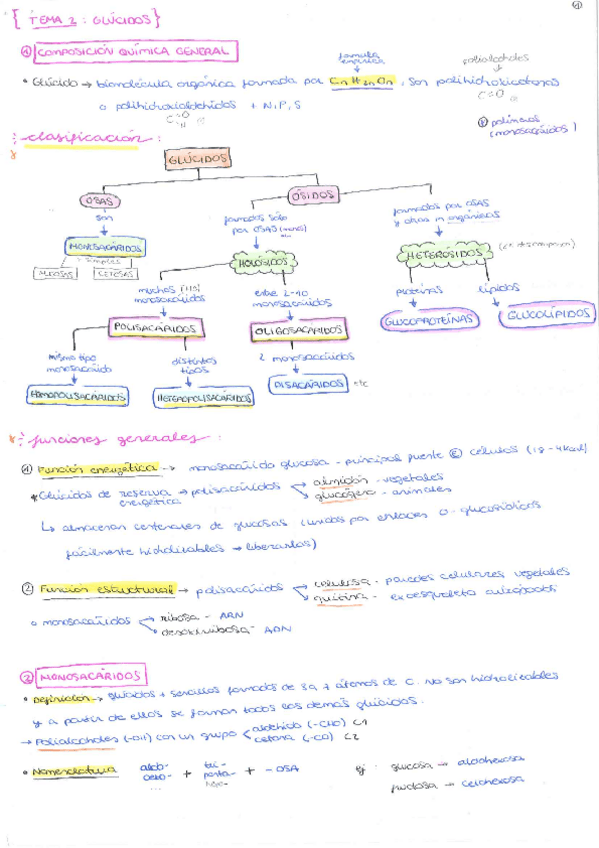 TEMA 2: GLÚCIDOS
①
① COMPOSICIÓN QUÍMICA GENERAL
fórmula empírica
polialcoholes
• Glúcido → biomolécula orgánica formada por CnH2nOn, son polihidroxicetonas
C=O
o polihidroxialdehídos + N, P, S
④ polímeros (monosacáridos)
clasificación:
GLÚCIDOS
OSAS
ÓSIDOS
son
formados sólo por OSAS
formados por OSAS y otras m orgánicas
MONOSACÁRIDOS
simples
ALDOSAS
CETOSAS
HOLÓSIDOS
HETERÓSIDOS
muchos (>10) monosacáridos
entre 2-10 monosacáridos
proteínas
lípidos
POLISACÁRIDOS
OLIGOSACÁRIDOS
GLUCOPROTEÍNAS
GLUCOLÍPIDOS
mismo tipo monosacárido
distintos tipos
2 monosacáridos
HOMOPOLISACÁRIDOS
HETEROPOLISACÁRIDOS
DISACÁRIDOS etc
funciones generales:
① Función energética → monosacárido glucosa - principal fuente Ⓔ células (1g - 4kcal)
* Glúcidos de reserva energética → polisacáridos
almidón - vegetales
glucógeno - animales
↳ almacenan centenares de glucosas (unidas por enlaces O-glucosídicos
fácilmente hidrolizables → liberarlas)
② Función estructural → polisacáridos
celulosa - paredes celulares vegetales
quitina - exoesqueleto artrópodos
o monosacáridos
ribosa - ARN
desoxirribosa - ADN
② MONOSACÁRIDOS
• Definición → glúcidos + sencillos formados de 3 a 7 átomos de C. No son hidrolizables
y a partir de ellos se forman todos los demás glúcidos.
→ Polialcoholes (-OH) con un grupo
aldehído (-CHO) C1
cetona (-CO) C2
• Nomenclatura
aldo-
ceto-
...
+
tri-
penta-
...
+ -OSA
ej. glucosa → aldohexosa
fructosa → cetohexosa